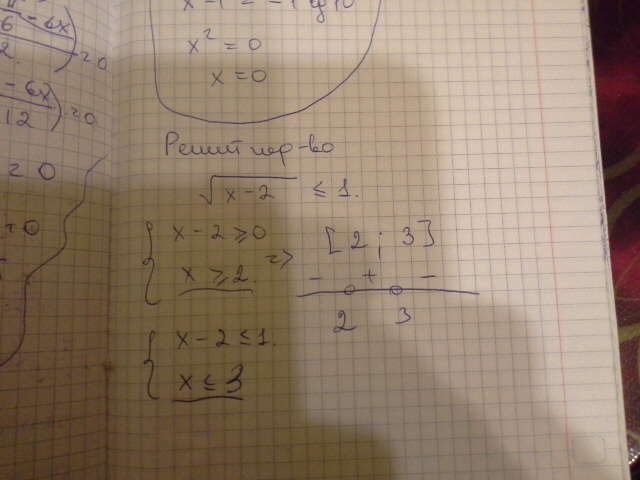 6 - 6x
2.
= 0
- 6x
12
= 0
= 0
= 0
x - 1 = - 1
x² = 0
x = 0
Решит нер-во
√x-2 ≤ 1.
x - 2 ≥ 0
x ≥ 2. => [2; 3]
- + -
2 3
x - 2 ≤ 1.
x ≤ 3